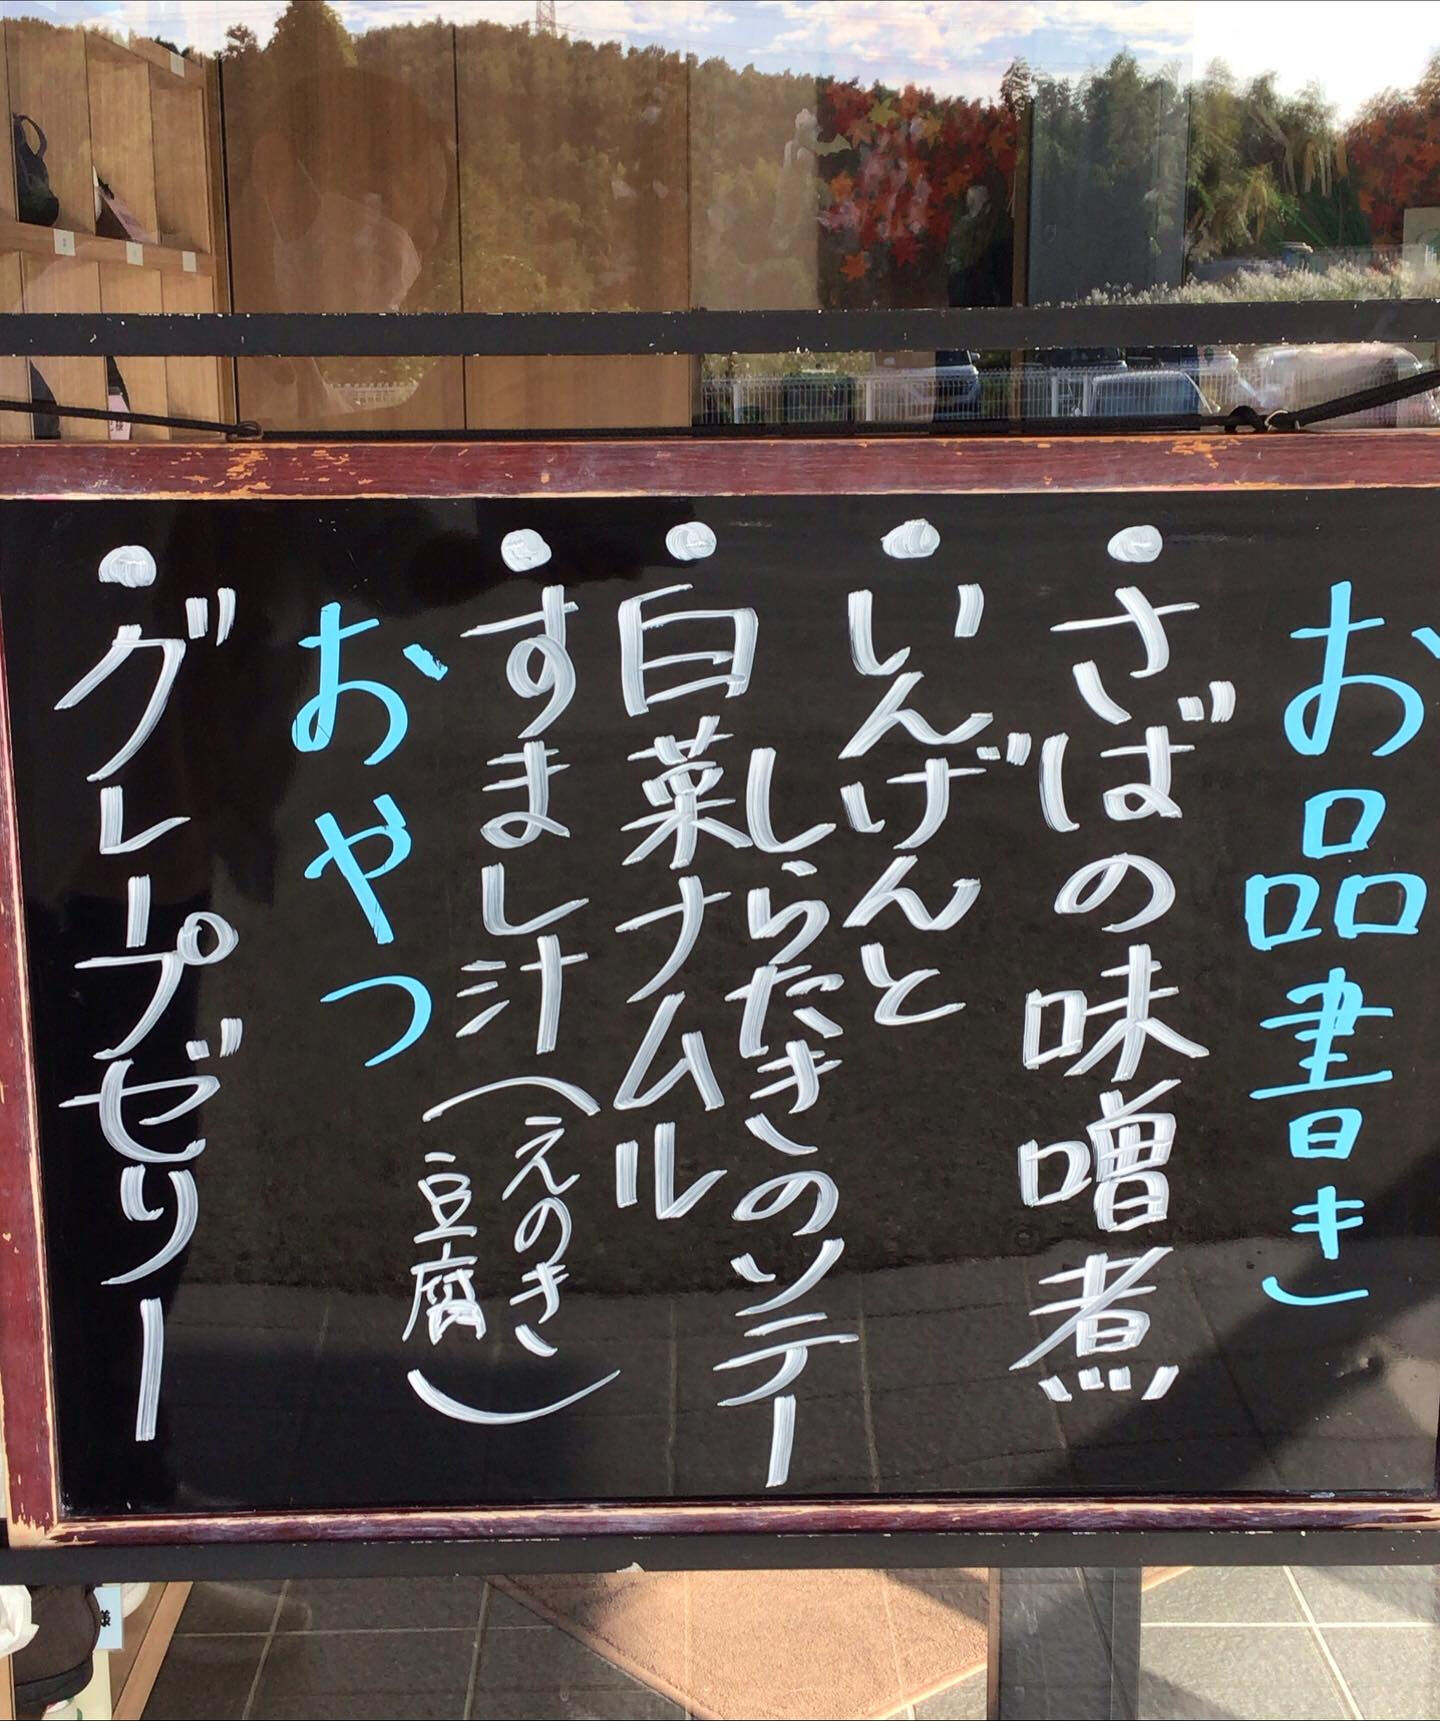 お品書き
・さばの味噌煮
・いんげんと
しらたきのソテー
・白菜ナムル
・すまし汁(えのき
豆腐)
おやつ
・グレープゼリー
様